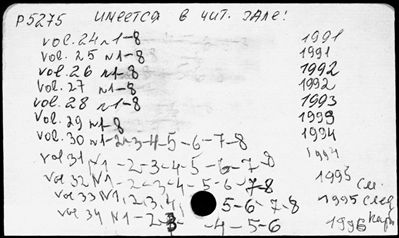 P5275 имеется в чит. зале!
vol. 24 n1-8 1991
vol. 25 n1-8 1991
vol. 26 n1-8 1992
vol. 27 n1-8 1992
vol. 28 n1-8 1993
vol. 29 n1-8 1993
vol. 30 n1-2-3-4-5-6-7-8 1994
vol 31 N1-2-3-4-5-6-7-8 1994
vol 32 N1-2-3-4-5-6-7-8 1995
vol 33 N1,2,3,4, 5-6-7-8 1995
vol 34 N1-2-3 -4-5-6 1996
см.
след
карт